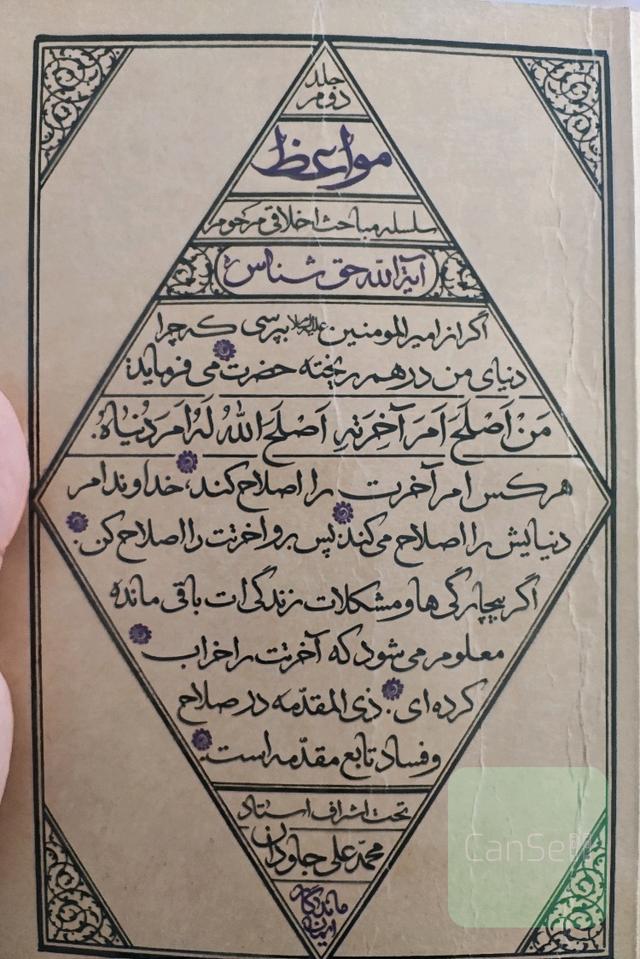 جلد
دوم
مواعظ
سلسله مباحث اخلاقی مرحوم
آیةالله حق شناس
اگر از امیرالمومنین علیه‌السلام بپرسی که چرا
دنیای من درهم ریخته حضرت می فرماید:
مَنْ اَصْلَحَ اَمَرَ آخِرَتِهِ اَصْلَحَ اللهُ لَهُ اَمَر دُنیاهُ.
هرکس امر آخرت را اصلاح کند، خداوند امر
دنیایش را اصلاح می کند. پس برو اخرتت را اصلاح کن.
اگر بیچارگی ها و مشکلات زندگی ات باقی مانده
معلوم می شود که آخرتت را خراب
کرده ای. ذی المقدّمه در صلاح
و فساد تابع مقدّمه است.
تحت اشراف استاد
محمدعلی جاودان
ماندگار
CanSell